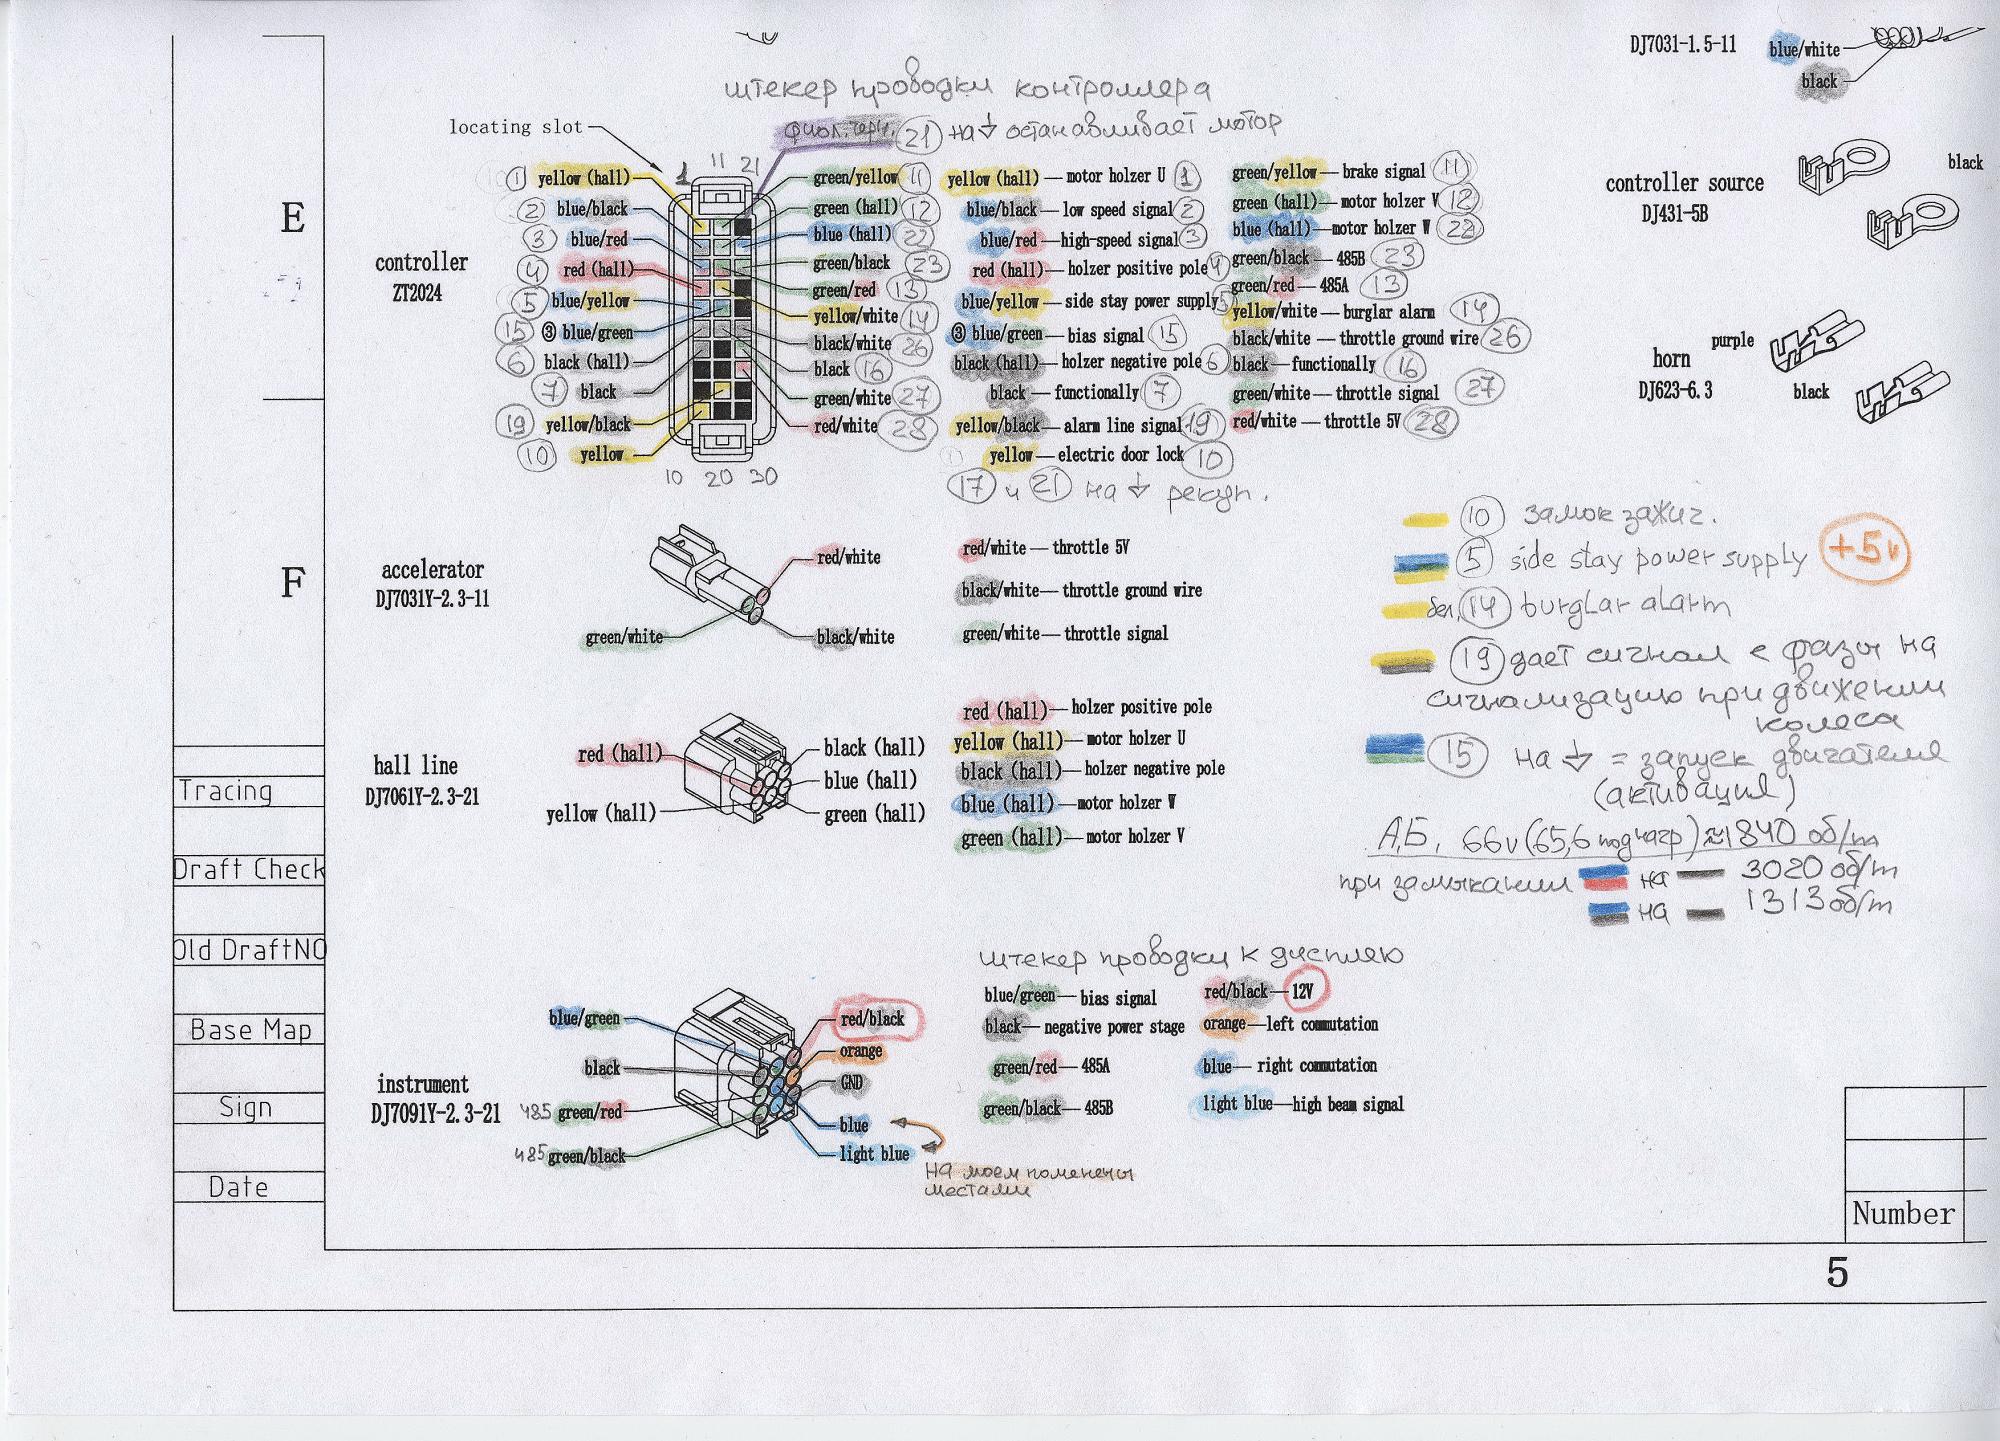 DJ7031-1.5-11
blue/white
black
штекер проводки контроллера
locating slot
фиол.черн. 21 на ⏚ останавливает мотор
1 11 21
1 yellow (hall)
2 blue/black
3 blue/red
4 red (hall)
5 blue/yellow
15 ③ blue/green
6 black (hall)
7 black
19 yellow/black
10 yellow
green/yellow 11
green (hall) 12
blue (hall) 22
green/black 23
green/red 13
yellow/white 14
black/white 26
black 16
green/white 27
red/white 28
10 20 30
E
controller
ZT2024
yellow (hall)—motor holzer U 1
blue/black—low speed signal 2
blue/red—high-speed signal 3
red (hall)—holzer positive pole 4
blue/yellow—side stay power supply 5
③ blue/green—bias signal 15
black (hall)—holzer negative pole 6
black—functionally 7
yellow/black—alarm line signal 19
yellow—electric door lock 10
17 и 21 на ⏚ рекуп.
green/yellow—brake signal 11
green (hall)—motor holzer V 12
blue (hall)—motor holzer W 22
green/black—485B 23
green/red—485A 13
yellow/white—burglar alarm 14
black/white—throttle ground wire 26
black—functionally 16
green/white—throttle signal 27
red/white—throttle 5V 28
controller source
DJ431-5B
black
horn
DJ623-6.3
purple
black
F
accelerator
DJ7031Y-2.3-11
red/white
green/white
black/white
red/white—throttle 5V
black/white—throttle ground wire
green/white—throttle signal
10 замок зажиг.
5 side stay power supply +5v
бел. 14 burglar alarm
19 дает сигнал с фазы на
сигнализацию при движении
колеса
15 на ⏚ = запуск двигателя
(активация)
А,Б, 66v (65,6 под нагр) ≈1840 об/m
при замыкании на 3020 об/m
на 1313 об/m
hall line
DJ7061Y-2.3-21
red (hall)
yellow (hall)
black (hall)
blue (hall)
green (hall)
red (hall)—holzer positive pole
yellow (hall)—motor holzer U
black (hall)—holzer negative pole
blue (hall)—motor holzer W
green (hall)—motor holzer V
штекер проводки к дисплею
instrument
DJ7091Y-2.3-21
blue/green
black
485 green/red
485 green/black
red/black
orange
GND
blue
light blue
на моем поменены
местами
blue/green—bias signal
black—negative power stage
green/red—485A
green/black—485B
red/black—12V
orange—left commutation
blue—right commutation
light blue—high beam signal
Tracing
Draft Check
Old DraftNO
Base Map
Sign
Date
Number
5